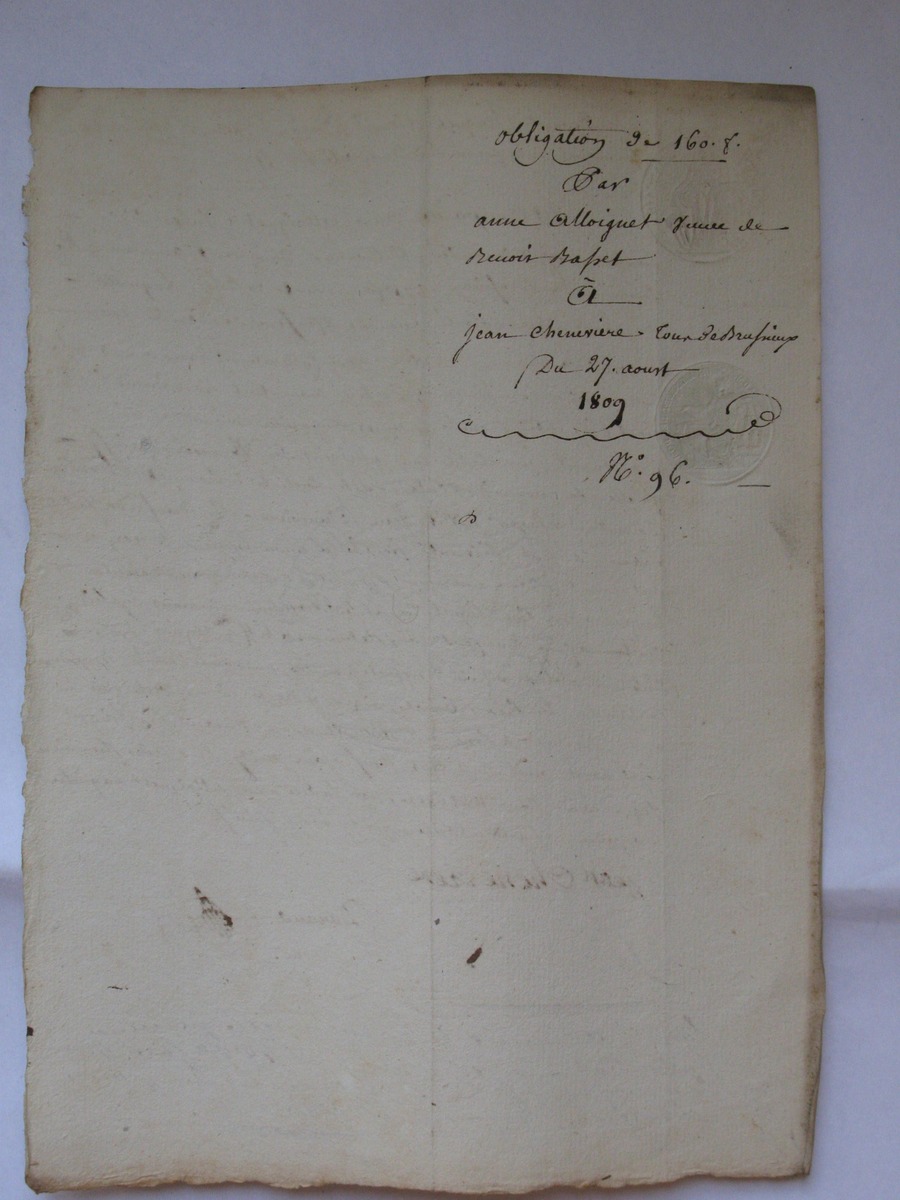 obligation de 160. f.
Par
anne Alloignet veuve de
Benoit Basset
À
jean cheneviere. Tous de Brussieux
Du 27. aoust
1809
N.° 96.